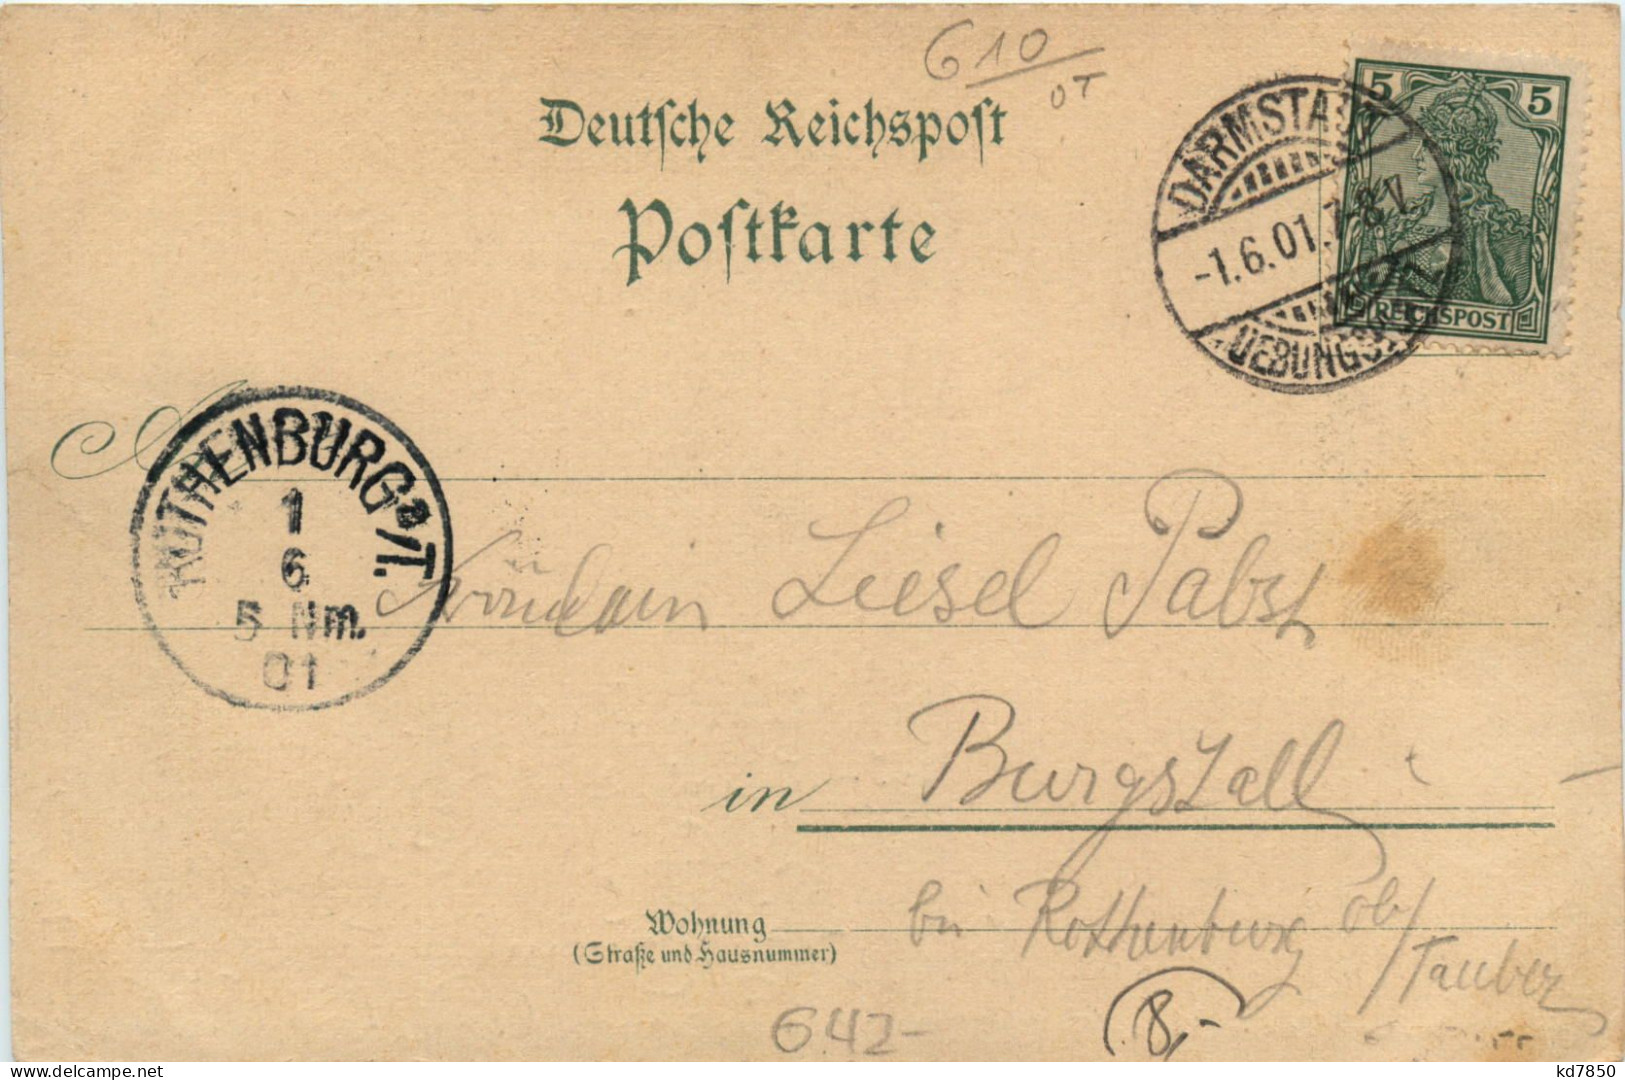 610
OT
Deutsche Reichspost
Postkarte
5 5
REICHSPOST
DARMSTADT
-1.6.01.7-8V.
UEBUNGSPL.
ROTHENBURG a/T.
1
6
5 Nm.
01
Fräulein Liesel Pabst
in Burgstall
bei Rothenburg ob/
/Tauber
Wohnung
(Straße und Hausnummer)
642-
8,-
kd7850